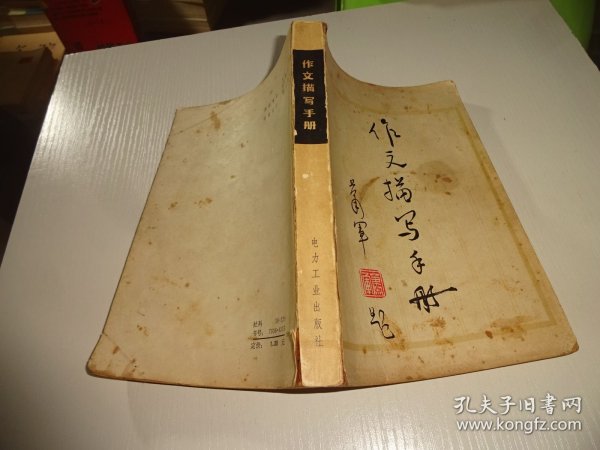 作文描写手册
电力工业出版社
作文描写手册
萧军
题
书号:
定价:
孔夫子旧书网
www.kongfz.com